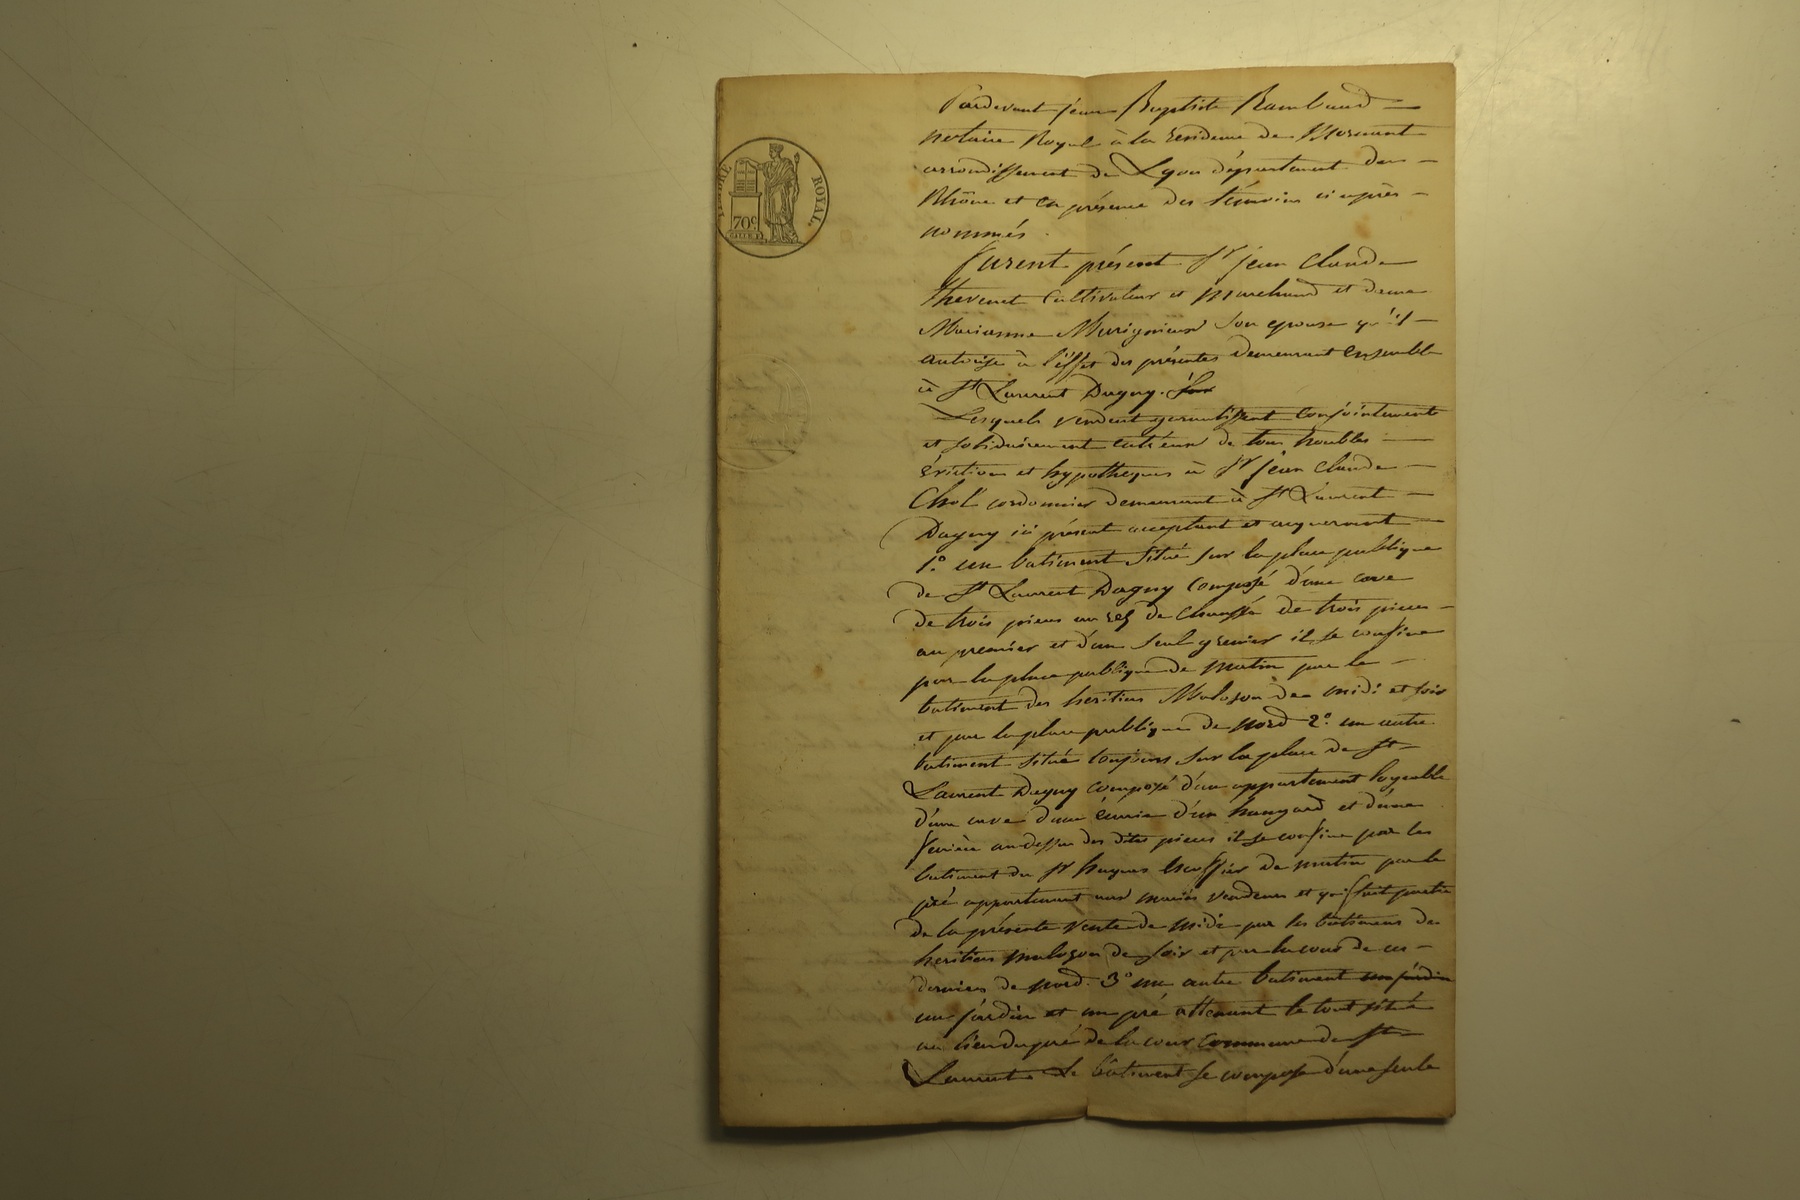 TIMBRE ROYAL.
70c
Pardevant jean Baptiste Rambaud
notaire Royal à la residence de Mornant
arrondissement de Lyon département du
Rhône et en présence des témoins ci après
nommés.
furent présent Sr jean Claude
thevenet cultivateur et marchand et dame
Marianne son epouse qu'il
autorise à l'éffet des présentes demeurant ensemble
à St Laurent Dagny.
Lesquels vendent garantissent conjointement
et solidairement entr'eux de tous troubles
éviction et hypotheques à Sr jean Claude
Chol cordonnier demeurant à St Laurent
Dagny ici présent acceptant et acquerront
1.° un batiment situé sur la place publique
de St Laurent Dagny composé d'une cave
de trois pieces au rez de chaussé de trois pieces
au premier et d'un seul grenier il se confine
par la place publique de matin par le
batiment des heritiers Malozon de midi et soir
et par la place publique de nord 2.° un autre
batiment situé toujours sur la place de St
Laurent Dagny composé d'un appartement logeable
d'une cave d'une écurie d'un hangard et d'une
feniere au dessus des dites pieces il se confine par les
batiment du Sr hugues de matin par le
pré appartenant aux mariés vendeurs et qui fait partie
de la présente vente de midi par les batimens des
heritiers malozon de soir et par la cour de ces
derniers de nord. 3° un autre batiment un jardin
un jardin et un pré attenant le tout situé
au lieu du pré de la cour commune de St
Laurent. Le bâtiment se compose d'une seule